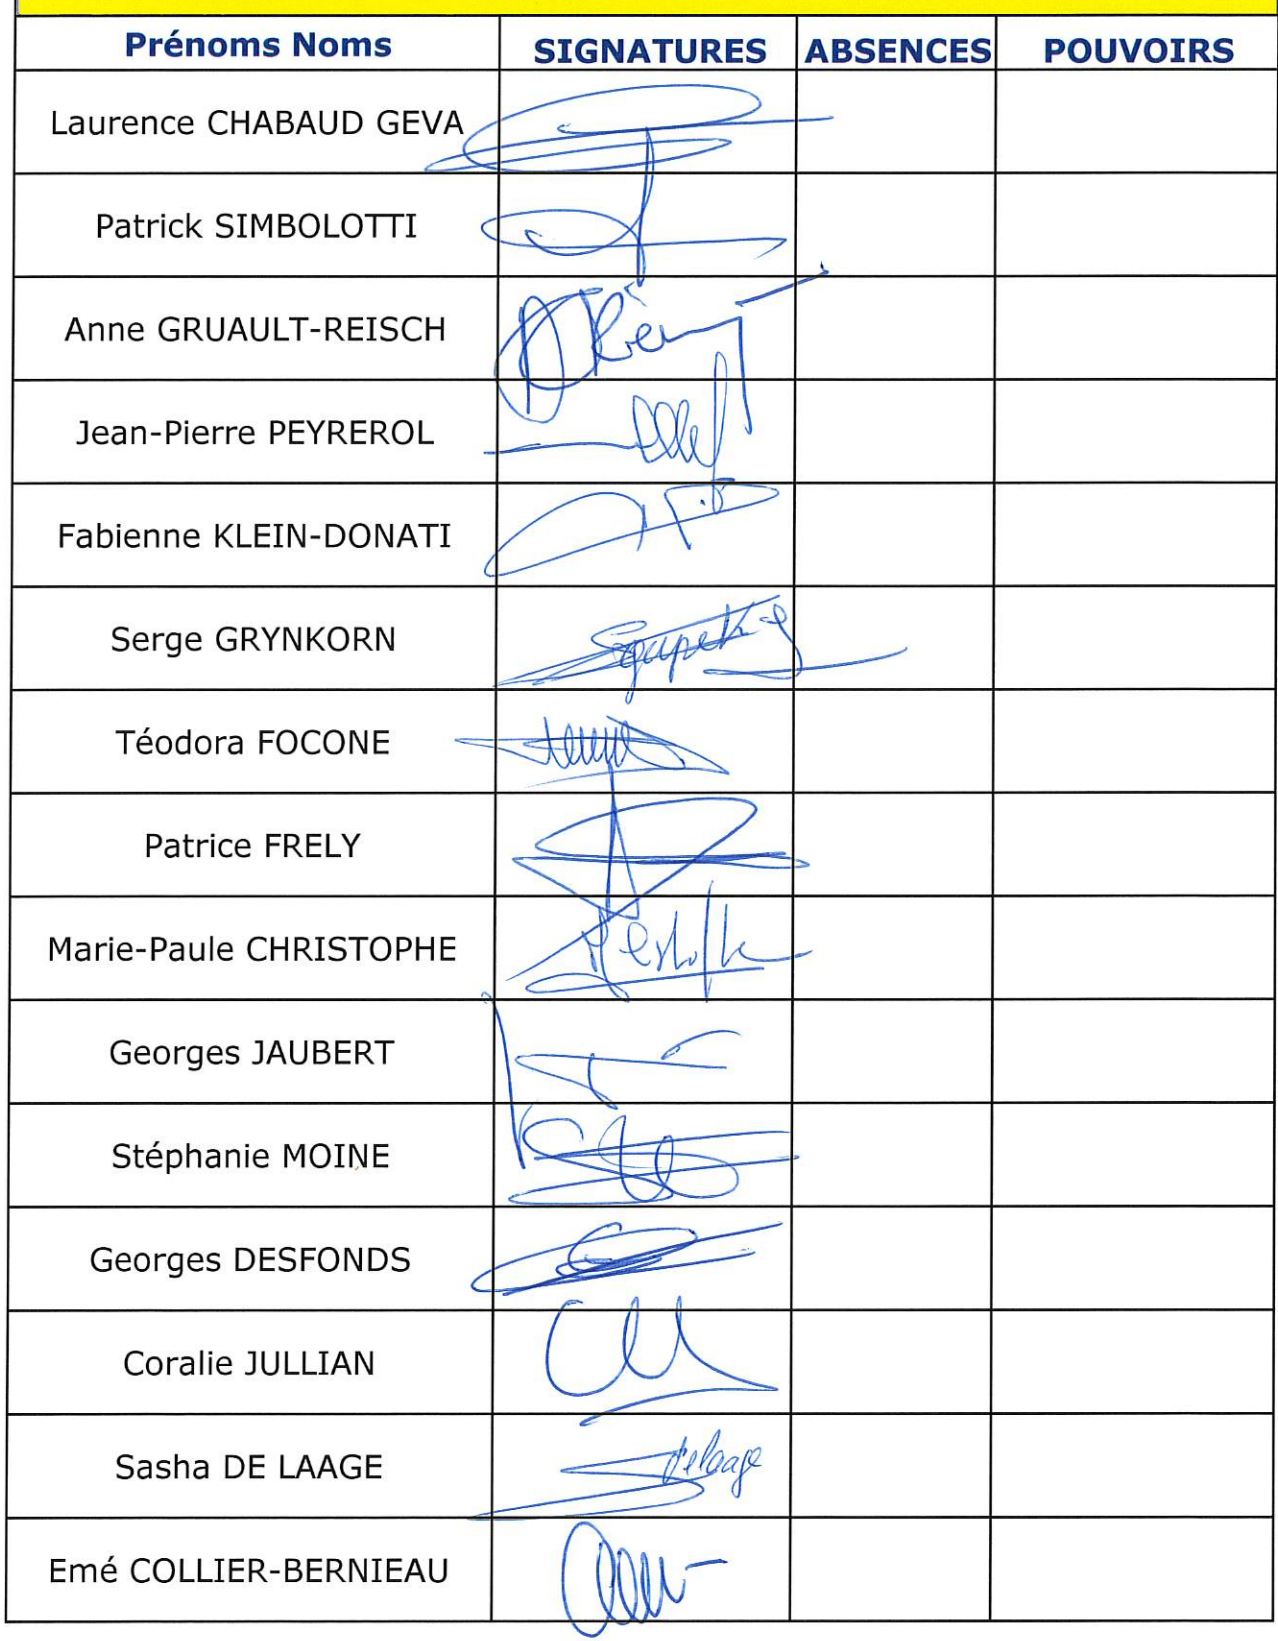 Prénoms Noms SIGNATURES ABSENCES POUVOIRS
Laurence CHABAUD GEVA
Patrick SIMBOLOTTI
Anne GRUAULT-REISCH
Jean-Pierre PEYREROL
Fabienne KLEIN-DONATI
Serge GRYNKORN
Téodora FOCONE
Patrice FRELY
Marie-Paule CHRISTOPHE
Georges JAUBERT
Stéphanie MOINE
Georges DESFONDS
Coralie JULLIAN
Sasha DE LAAGE
Emé COLLIER-BERNIEAU